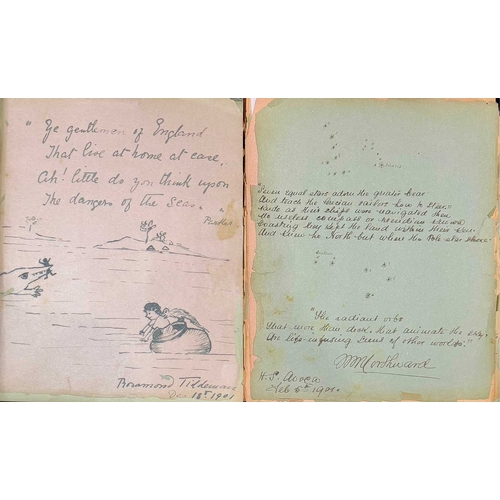 " Ye gentlemen of England
That live at home at ease.
Ah! little do you think upon
The dangers of the Seas. "
Parker
Rosamond
Dec 18th 1901
"Seven equal stars adorn the greater bear
And teach the Grecian sailor how to steer."
his ships were navigated then
No useless compass or meridian
Coasting they kept the land within their
And knew no North but when the Pole star shone"
"The radiant orbs
That more than deck, that animate the sky,
The life-infusing suns of other worlds."
H.S.
Feb 5th 1901.